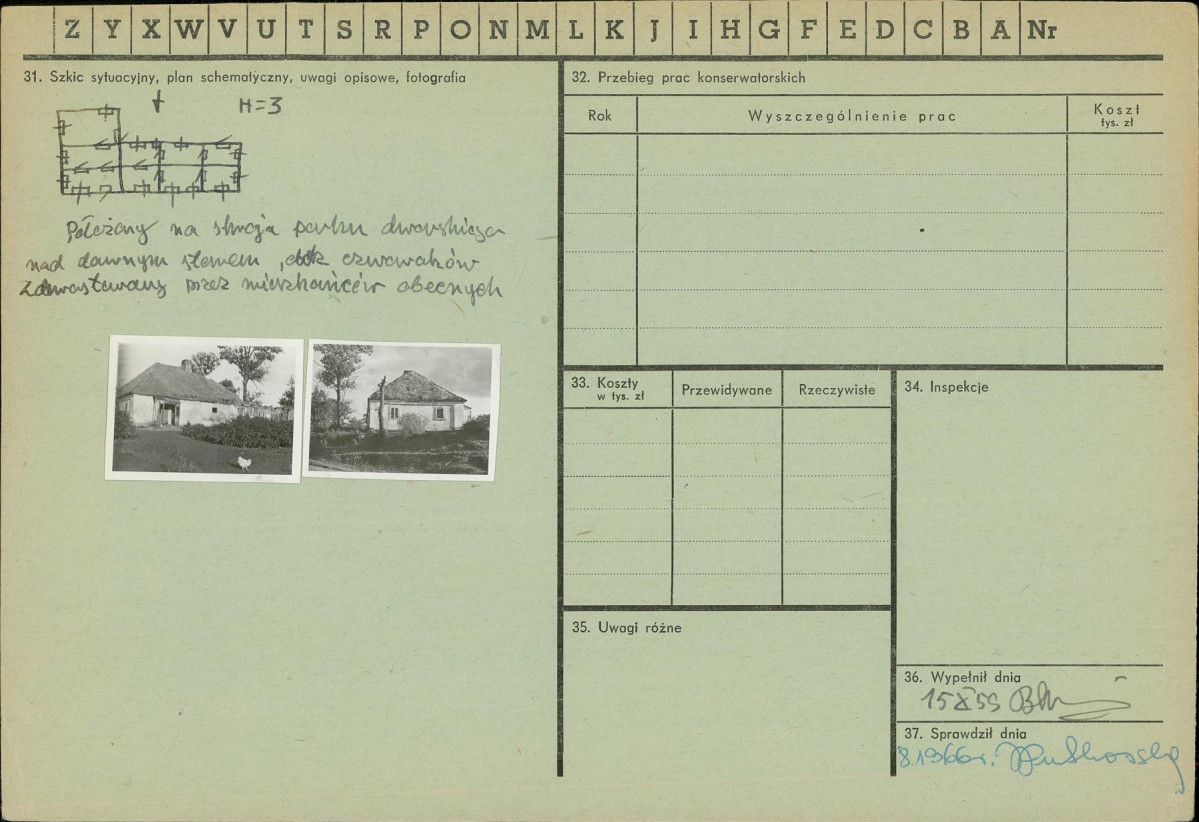 Z Y X W V U T S R P O N M L K J I H G F E D C B A Nr
31. Szkic sytuacyjny, plan schematyczny, uwagi opisowe, fotografia
H=3
Położony na skraju parku dworskiego
nad dawnym stawem, obok czworaków
Zdewastowany przez mieszkańców obecnych
32. Przebieg prac konserwatorskich
Rok
Wyszczególnienie prac
Koszt
tys. zł
33. Koszty
w tys. zł
Przewidywane
Rzeczywiste
34. Inspekcje
35. Uwagi różne
36. Wypełnił dnia
15 X 59
37. Sprawdził dnia
8.1966r.